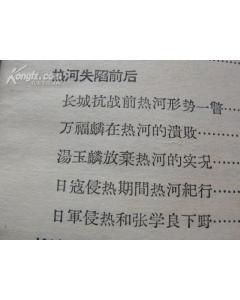 Kongfz.com
热河失陷前后
长城抗战前热河形势一瞥……
万福麟在热河的潰敗……
湯玉麟放棄热河的实况……
日寇侵热期間热河紀行……
日軍侵热和张学良下野……